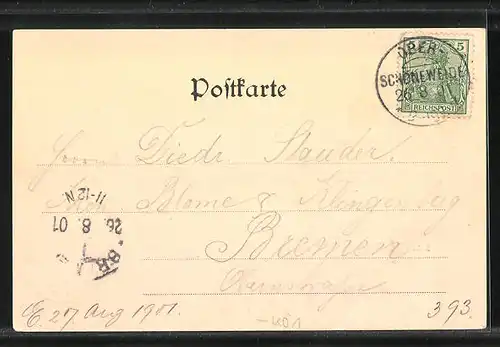 OBER-
SCHÖNEWEIDE
26 8
5
REICHSPOST
Postkarte
Herrn Diedr. Stauder
Blome & Klingenberg
Bremen
11-12 N.
26. 8. 01
E. 27 Aug 1901.
393.